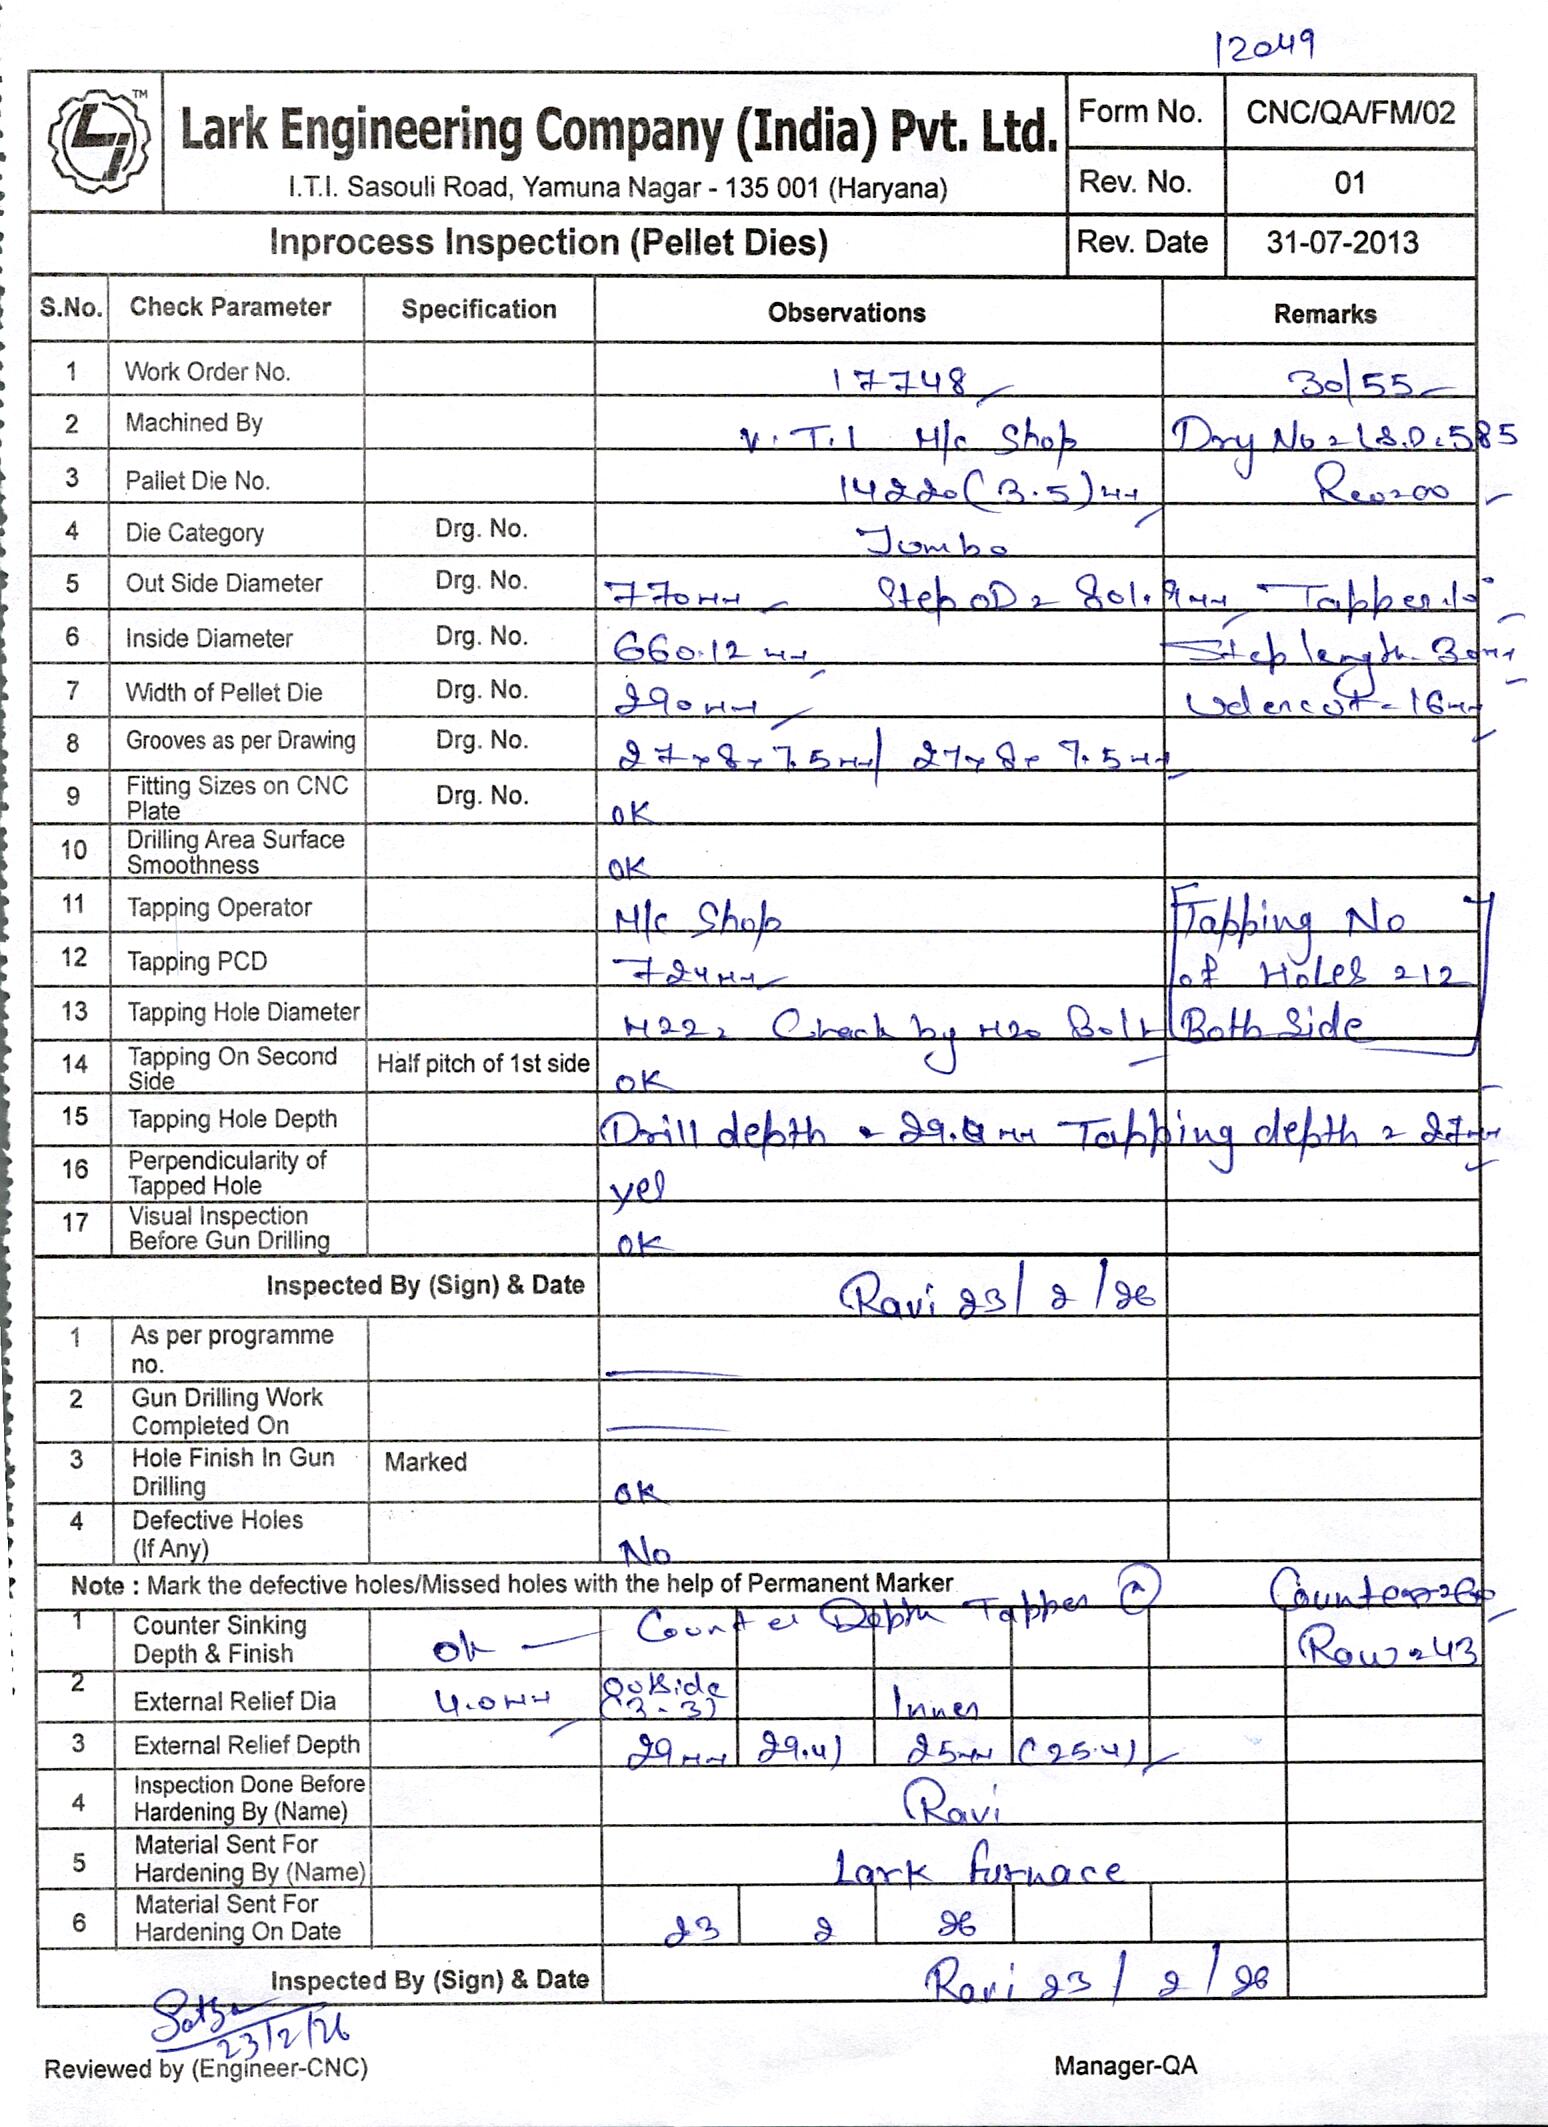 12049
TM
Lark Engineering Company (India) Pvt. Ltd.
I.T.I. Sasouli Road, Yamuna Nagar - 135 001 (Haryana)
Form No. CNC/QA/FM/02
Rev. No. 01
Inprocess Inspection (Pellet Dies) Rev. Date 31-07-2013
S.No. Check Parameter Specification Observations Remarks
1 Work Order No. 17748 30/55
2 Machined By V.T.L M/c Shop Drg No = LS.D.585
3 Pallet Die No. 14220 (3.5) mm Rev=00
4 Die Category Drg. No. Jumbo
5 Out Side Diameter Drg. No. 770mm Step OD = 801.9mm Tapper.10°
6 Inside Diameter Drg. No. 660.12 mm Step length - 30mm
7 Width of Pellet Die Drg. No. 290mm Udencut - 16mm
8 Grooves as per Drawing Drg. No. 27x8x7.5mm/ 27x8x7.5mm
9 Fitting Sizes on CNC Plate Drg. No. OK
10 Drilling Area Surface Smoothness OK
11 Tapping Operator M/c Shop Tapping No
12 Tapping PCD 724mm of Holes = 12
13 Tapping Hole Diameter M22, Check by M20 Bolt Both Side
14 Tapping On Second Side Half pitch of 1st side OK
15 Tapping Hole Depth Drill depth = mm Tapping depth = 27mm
16 Perpendicularity of Tapped Hole yes
17 Visual Inspection Before Gun Drilling OK
Inspected By (Sign) & Date Ravi 23/2/26
1 As per programme no.
2 Gun Drilling Work Completed On
3 Hole Finish In Gun Drilling Marked OK
4 Defective Holes (If Any) No
Note : Mark the defective holes/Missed holes with the help of Permanent Marker
1 Counter Sinking Depth & Finish ok Counter Depth Tapper
Row = 43
2 External Relief Dia 4.0mm Outside (3-3) Inner
3 External Relief Depth 29mm 29.4) 25mm (25.4)
4 Inspection Done Before Hardening By (Name) Ravi
5 Material Sent For Hardening By (Name) Lark furnace
6 Material Sent For Hardening On Date 23 2 26
Inspected By (Sign) & Date Ravi 23/2/26
23/2/26
Reviewed by (Engineer-CNC) Manager-QA